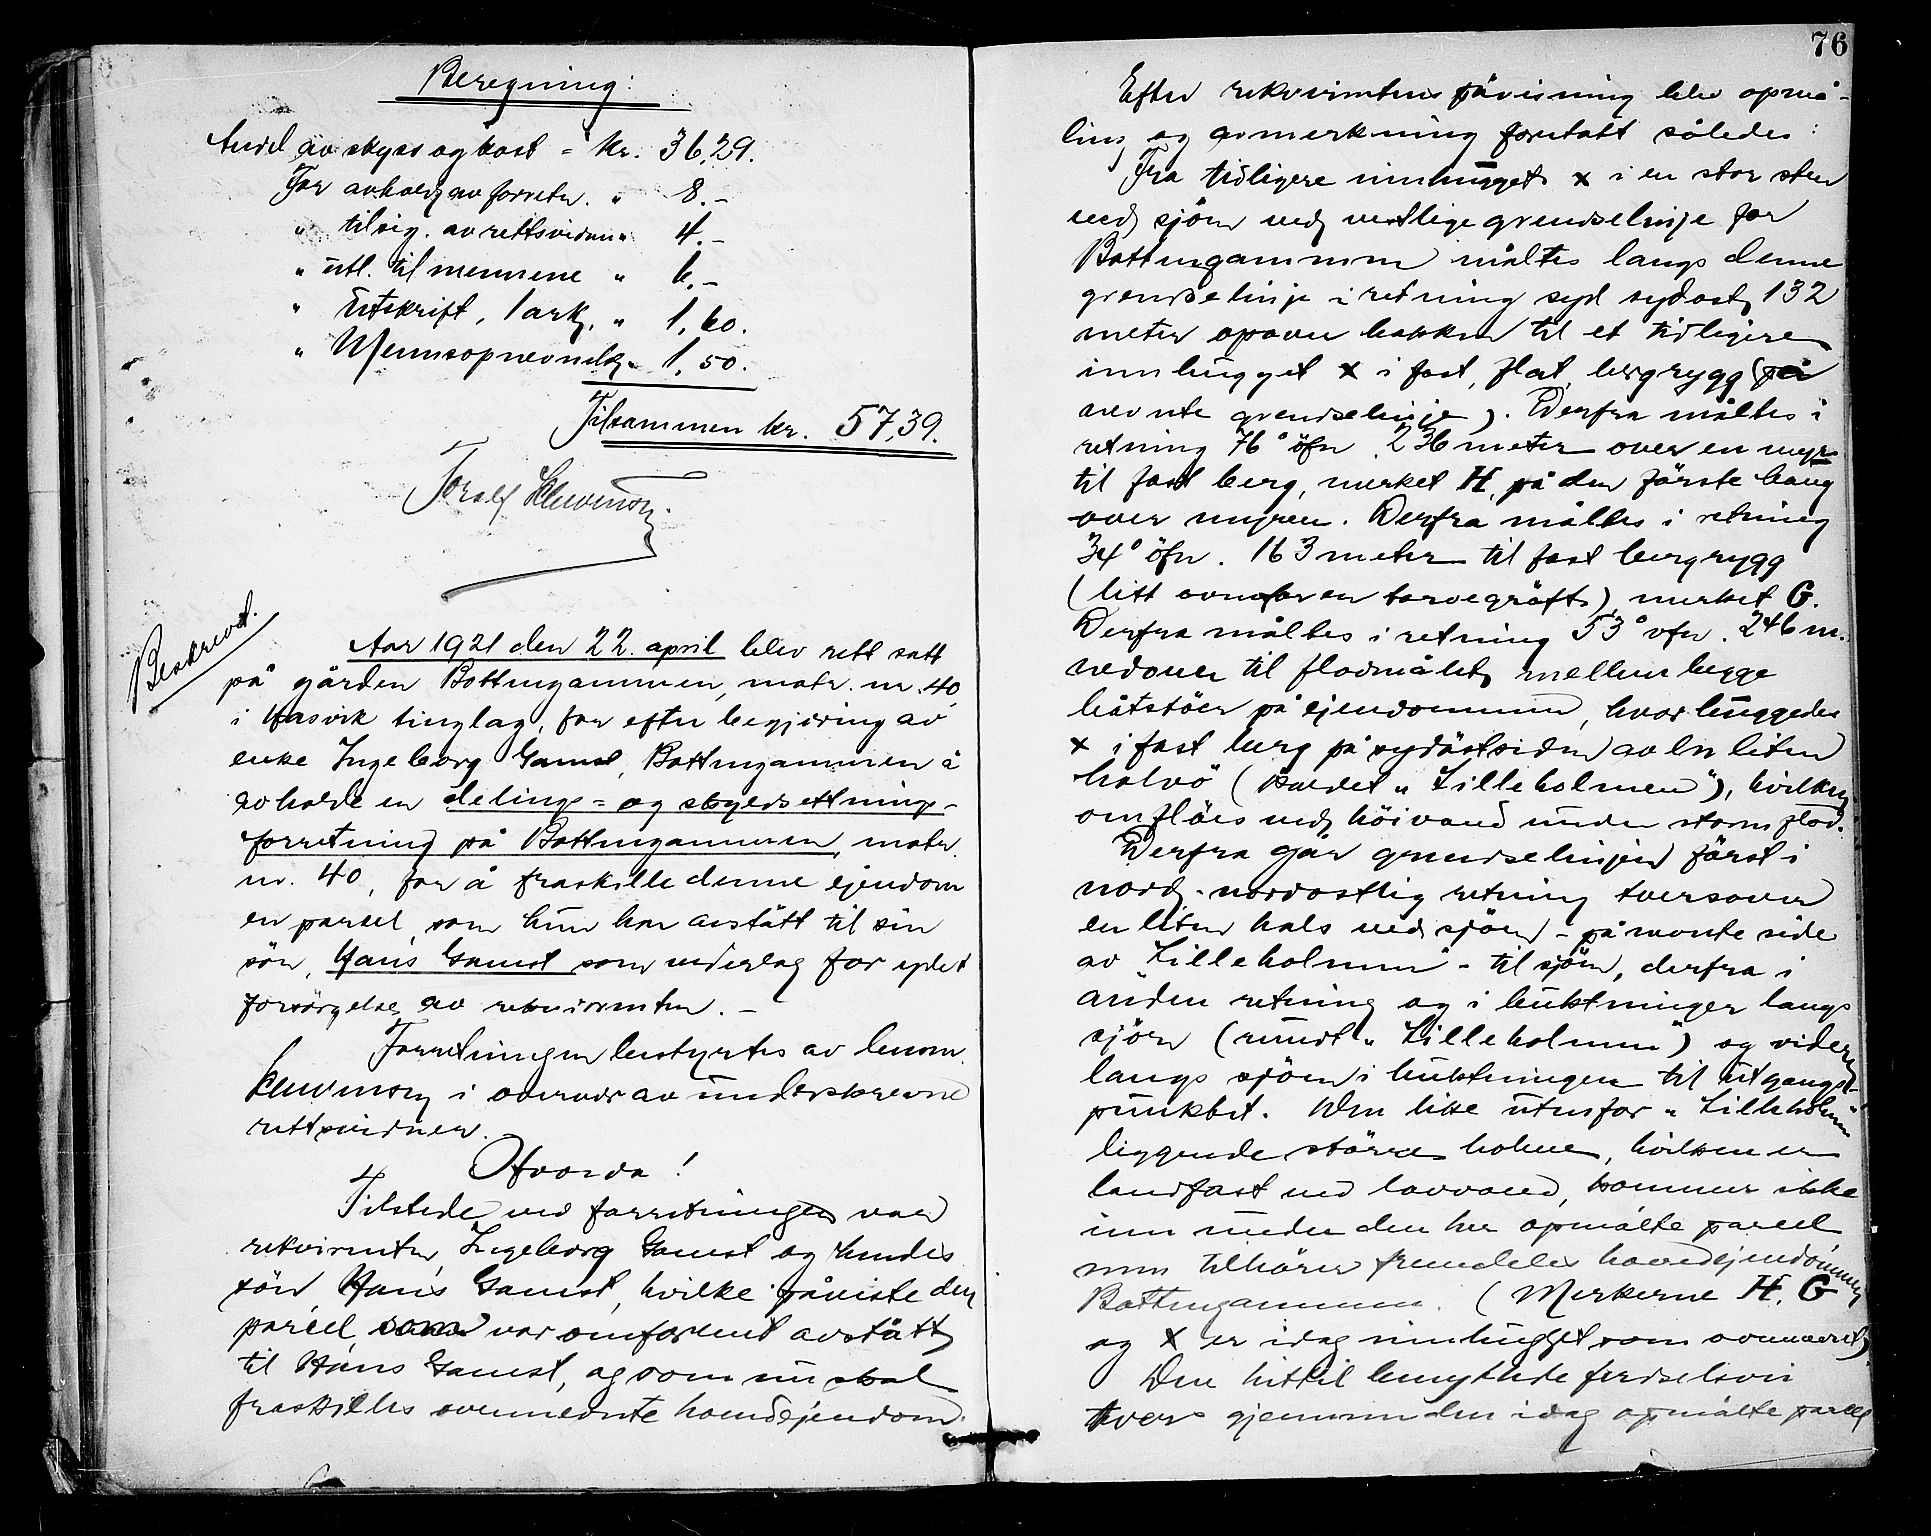 Beregning:
Andel av skyss og kost = kr. 36,29.
For avhold av forretn. " 8.-
" tilsig. av rettsvidner " 4.-
" utl. til mennene " 6.-
" Utskrift, 1 ark, " 1,60.
" Mennsopnevnelse " 1,50.
Tilsammen kr. 57,39.
Toralf
Beskrevet.
Aar 1921 den 22. april blev rett satt
på gården Bottengammen, matr. nr. 40
i Hasvik tinglag, for efter begjæring av
enke Ingeborg Gamst, Bottengammen å
avholde en delings- og skyldsettnings-
forretning på Bottengammen, matr.
nr. 40, for å fraskille denne ejendom
en parcel, som hun har avstått til sin
sön, Hans Gamst som vederlag for ydet
forsörgelse av rekvirenten. -
Forretningen bestyrtes av lensm.
i overvær av underskrevne
rettsvidner.
Hvorda!
Tilstede ved forretningen var
rekvirenten, Ingeborg Gamst og hendes
sön Hans Gamst, hvilke påviste den
parcel, som var omforenet avstått
til Hans Gamst, og som nu skal
fraskilles ovennevnte hovedejendom.
76
Efter rekvirentens påvisning blev opmå-
ling og avmerkning foretatt således:
Fra tidligere innhugget x i en stor sten
ved sjöen ved vestlige grendselinje for
Bottengammen måltes langs denne
grendselinje i retning syd sydost 132
meter opover bakken til et tidligere
innhugget x i fast, flat, bergrygg (på
nevnte grendselinje). Derfra måltes i
retning 76° öfn. 236 meter over en myr
til fast berg, merket H, på den förste haug
over myren. Derfra måltes i retning
34° öfn. 163 meter til fast bergrygg
(litt ovenfor en torvegröft), merket G.
Derfra måltes i retning 53° vfn. 246 m.
nedover til flodmålet mellem begge
båtstöer på ejendommen, hvor huggedes
x i fast berg på sydöstsiden av en liten
halvö (kaldet "Lilleholmen"), hvilken
omflöes ved höivand under storm flod.
Derfra går grendselinjen först i
nord-nordostlig retning tversover
en liten hals ved sjöen - på nevnte side
av "Lilleholmen" - til sjöen, derfra i
anden retning og i buktninger langs
sjöen (rundt "Lilleholmen") og videre
langs sjöen i buktningen til utgangs-
punktet. Den like utenfor "Lilleholmen"
liggende större holme, hvilken er
landfast ved lavvand, kommer ikke
inn under den her opmålte parcel
men tilhörer fremdeles hovedejendommen
Bottengammen. (Merkerne H, G
og x er idag innhugget som ovennevnt).
Den hittil benyttede ferdselsvei
tvers gjennem den idag opmålte parcel